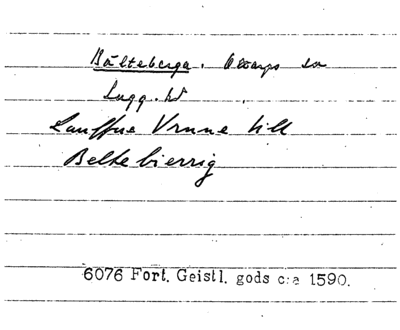 Bälteberga. Ottarps sn
Lugg. hd
Lauffue Vnnne till
Beltebierrig
6076 Fort. Geistl. gods c:a 1590.